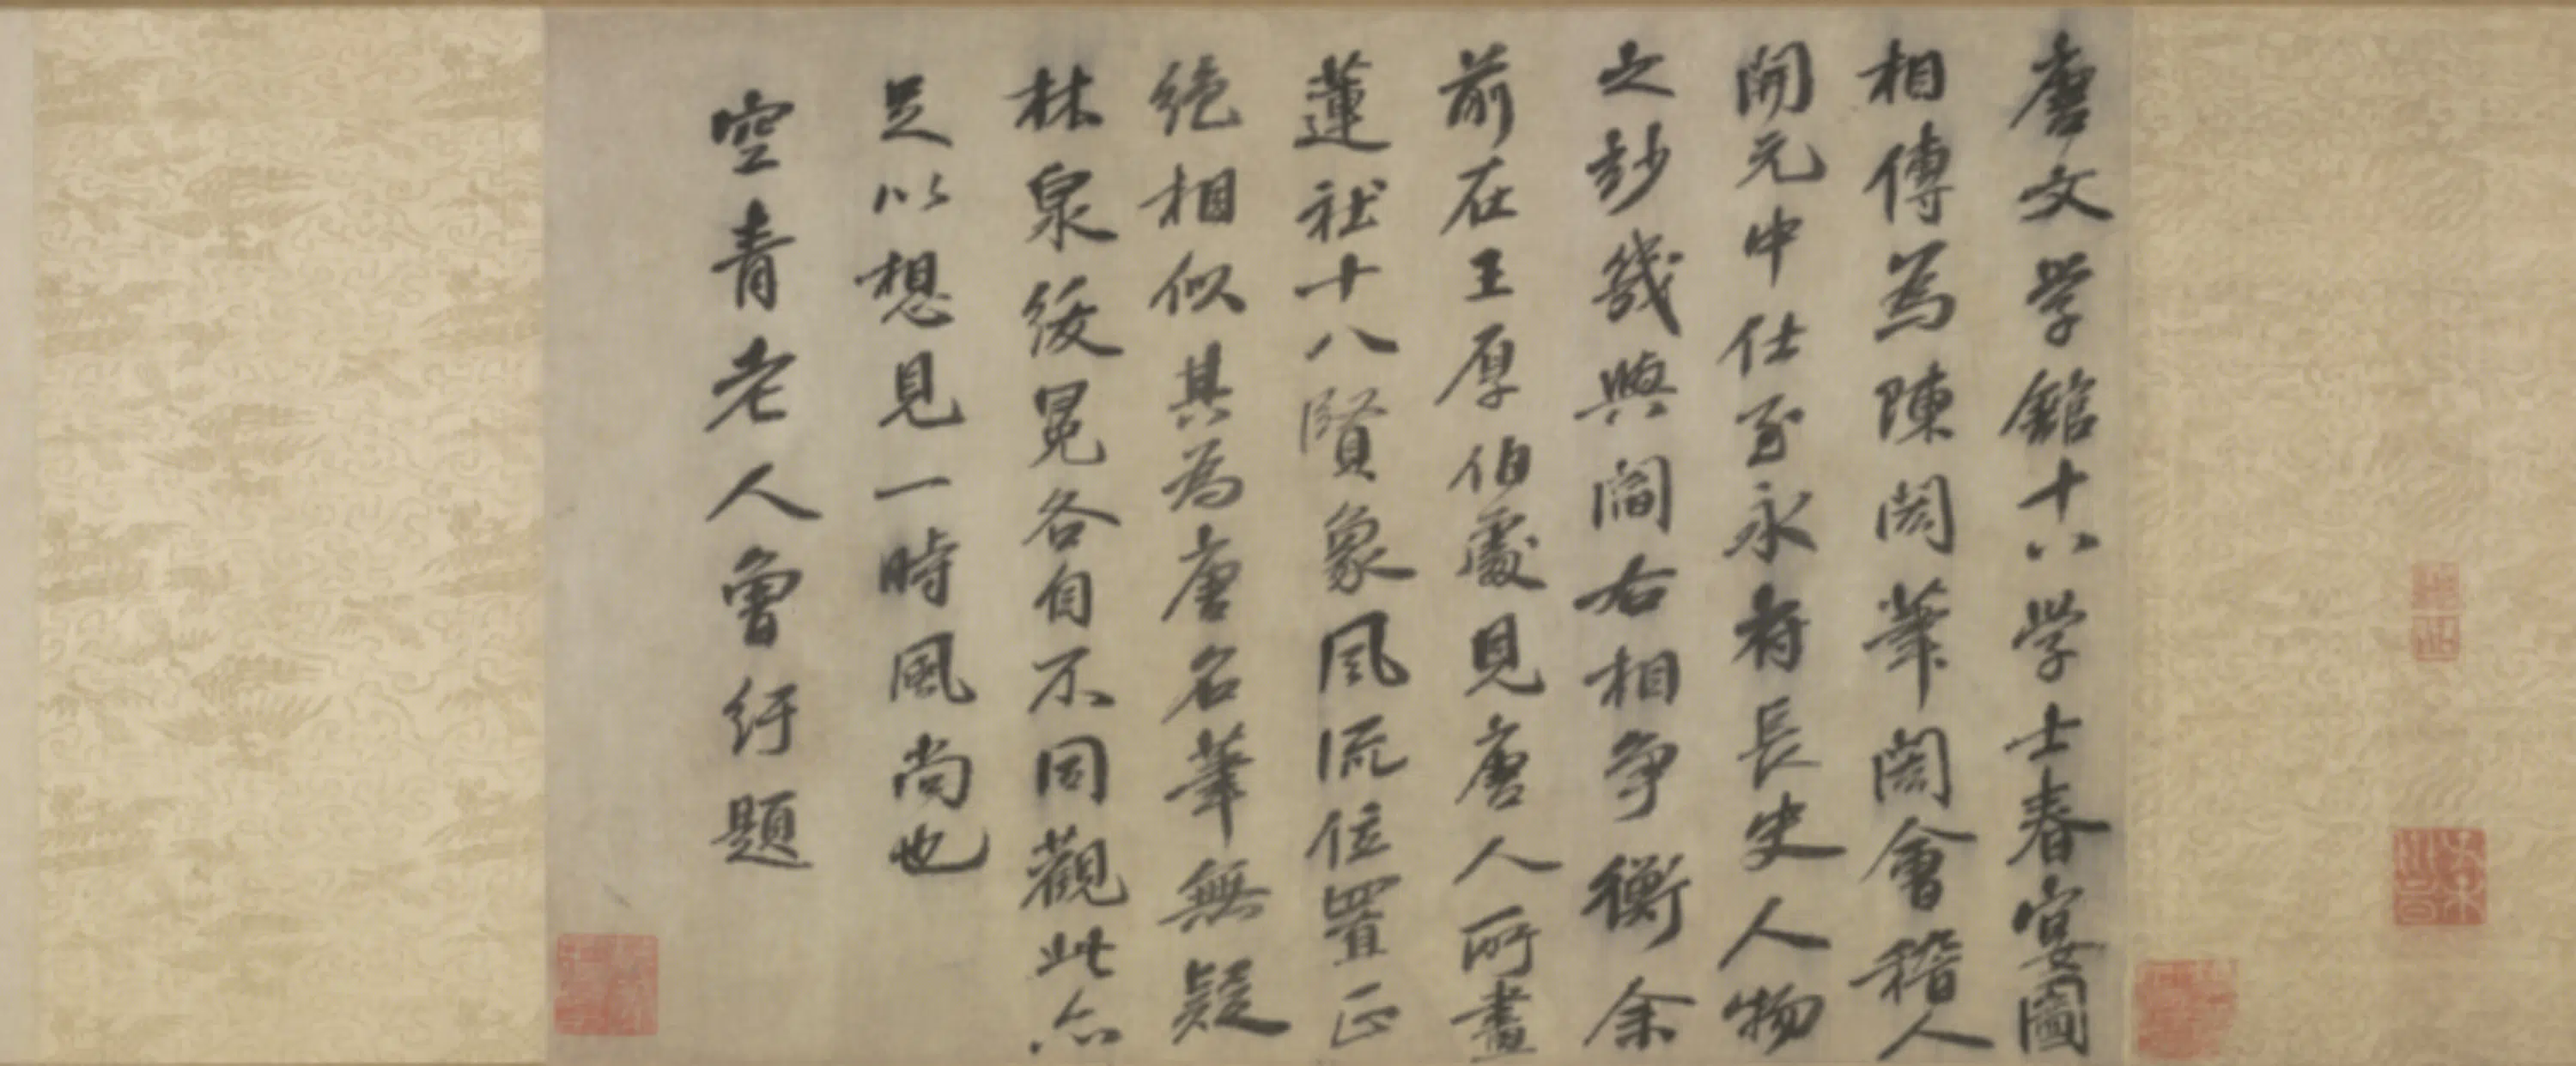 唐文学館十八学士春宴圖
相傳為陳閎筆閎會稽人
開元中仕至永府長史人物
之妙幾與閻右相爭衡余
前在王厚伯處見唐人所畫
蓮社十八賢象風流位置正
絶相似其為唐名筆無疑
林泉綬冕各自不同觀此亦
足以想見一時風尚也
空青老人曾紆題